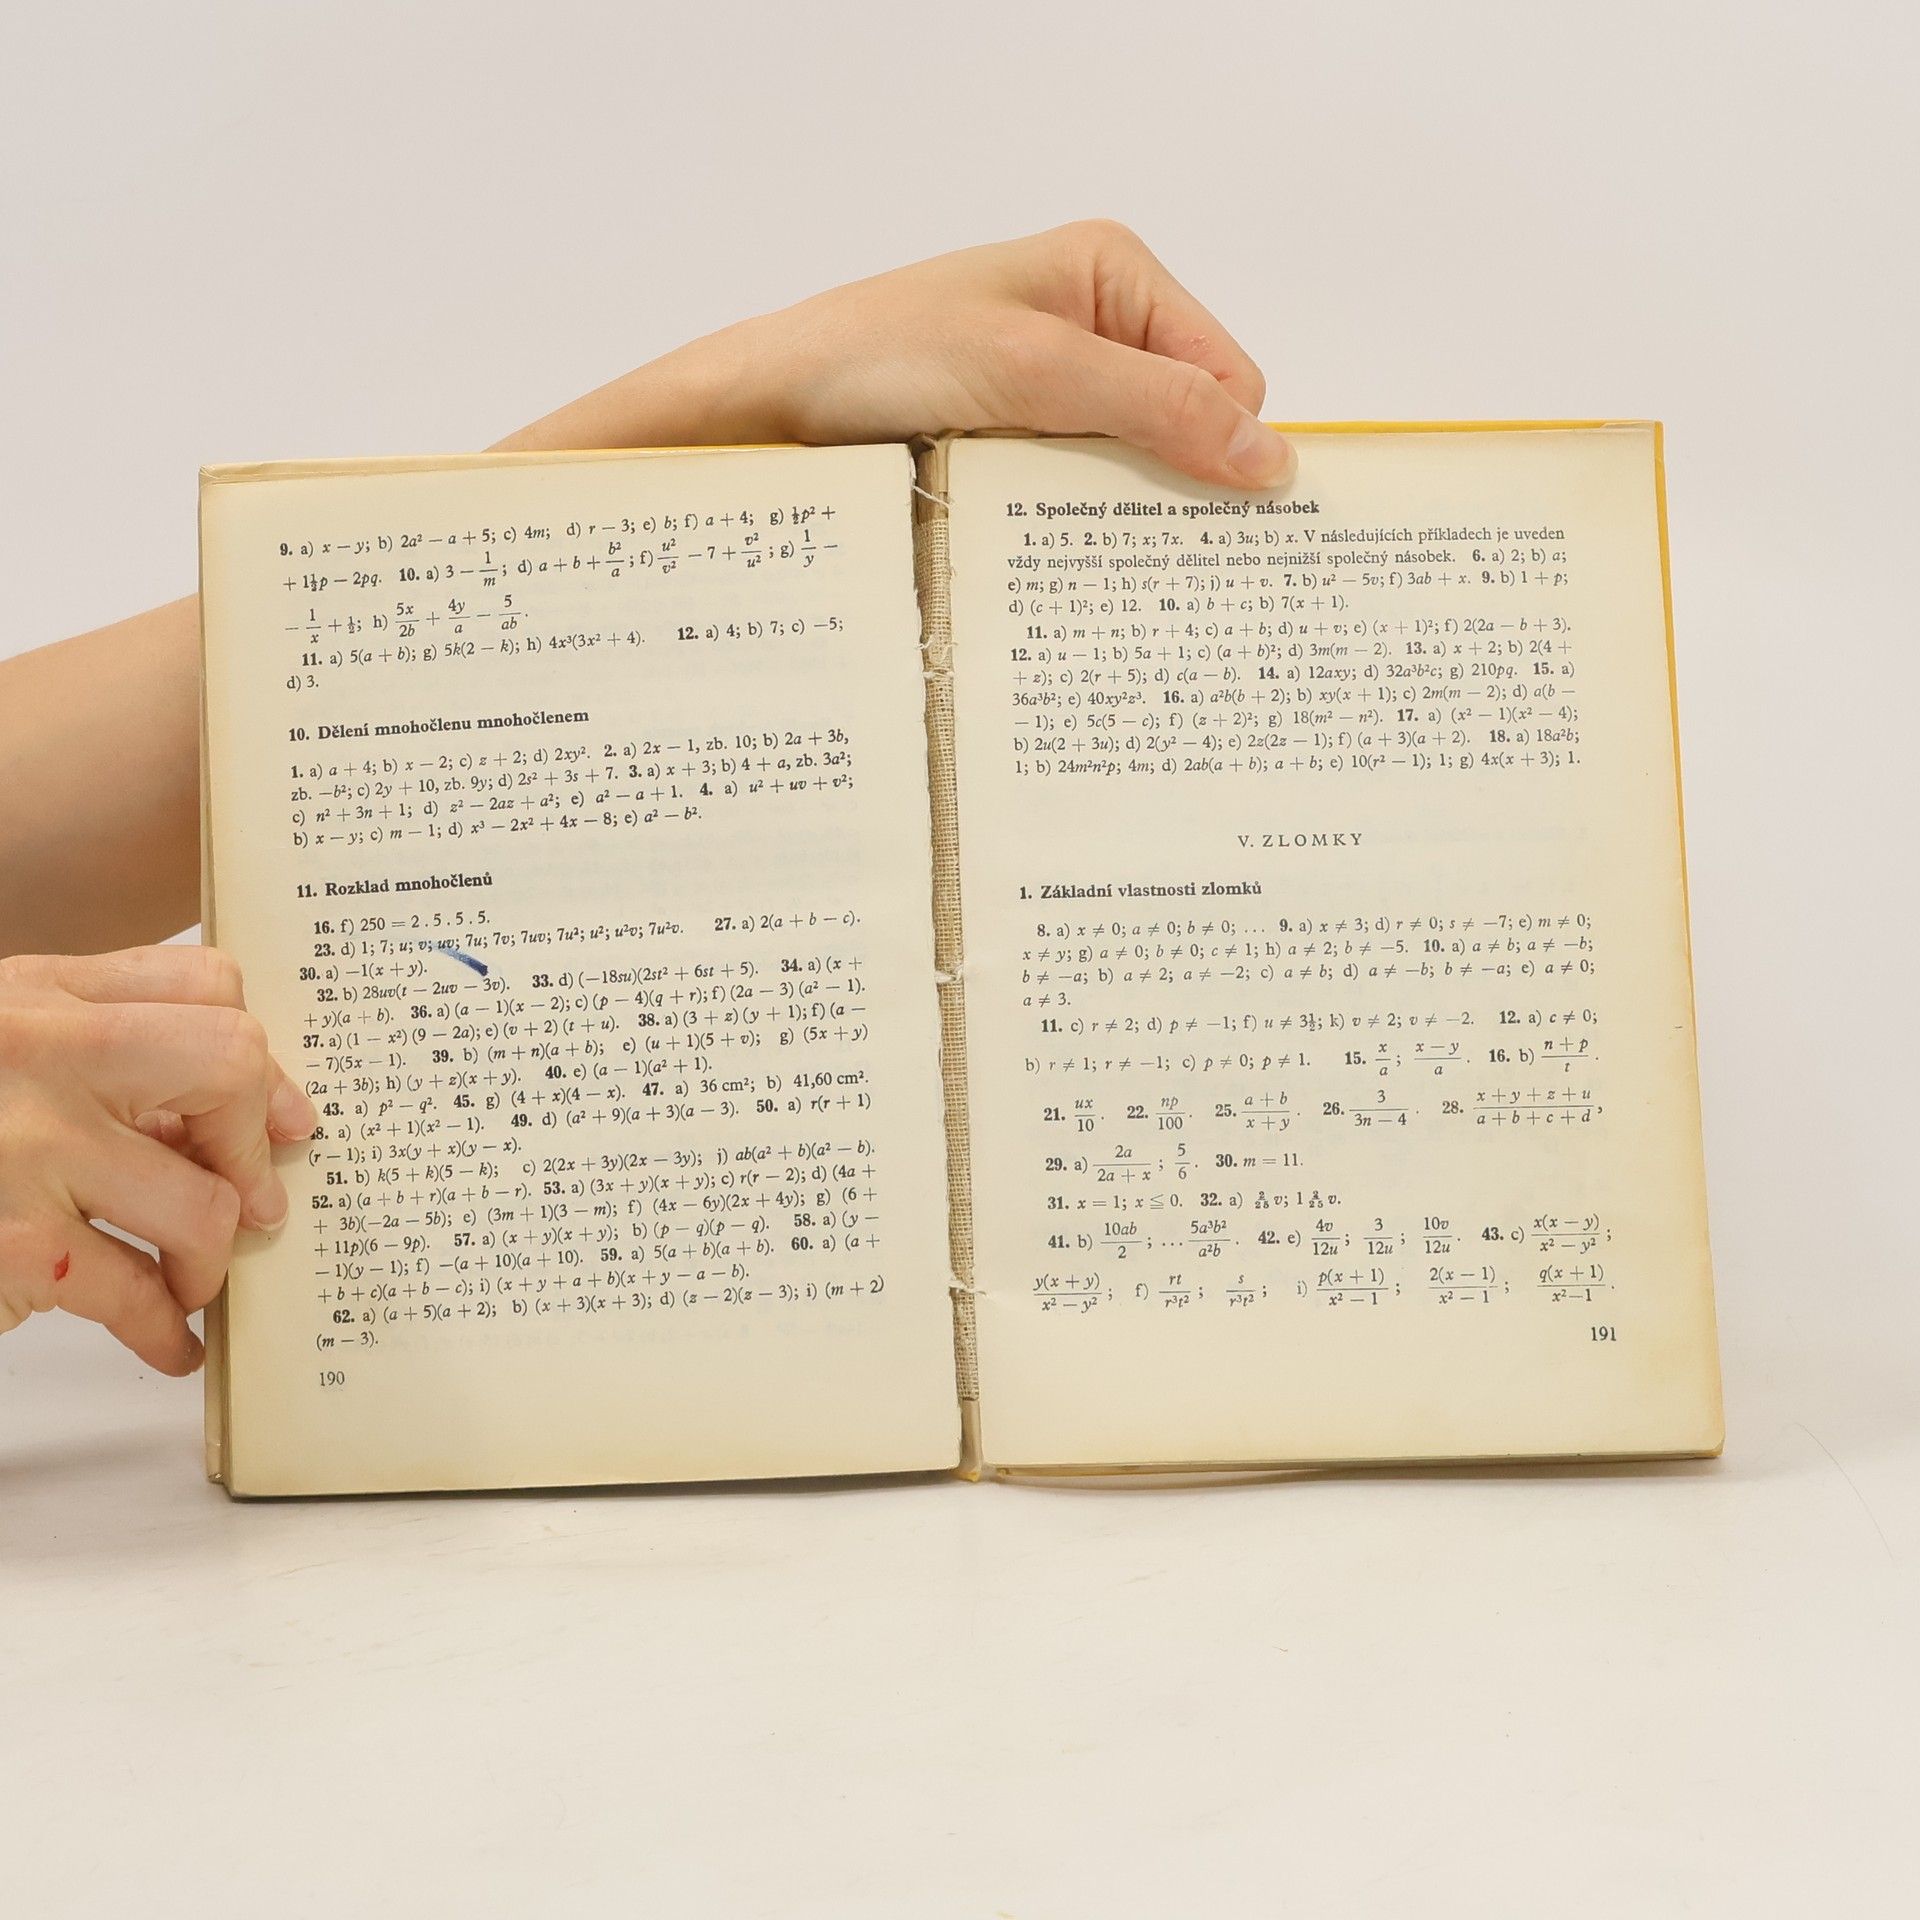 9. a) x — y; b) 2a² — a + 5; c) 4m; d) r — 3; e) b; f) a + 4; g) ½p² +
+ 1½p — 2pq. 10. a) 3 — 1/m; d) a + b + b²/a; f) u²/v² — 7 + v²/u²; g) 1/y —
— 1/x + ½; h) 5x/2b + 4y/a — 5/ab.
11. a) 5(a + b); g) 5k(2 — k); h) 4x³(3x² + 4). 12. a) 4; b) 7; c) —5;
d) 3.
10. Dělení mnohočlenu mnohočlenem
1. a) a + 4; b) x — 2; c) z + 2; d) 2xy². 2. a) 2x — 1, zb. 10; b) 2a + 3b,
zb. —b²; c) 2y + 10, zb. 9y; d) 2s² + 3s + 7. 3. a) x + 3; b) 4 + a, zb. 3a²;
c) n² + 3n + 1; d) z² — 2az + a²; e) a² — a + 1. 4. a) u² + uv + v²;
b) x — y; c) m — 1; d) x³ — 2x² + 4x — 8; e) a² — b².
11. Rozklad mnohočlenů
16. f) 250 = 2 . 5 . 5 . 5.
23. d) 1; 7; u; v; uv; 7u; 7v; 7uv; 7u²; u²; u²v; 7u²v. 27. a) 2(a + b — c).
30. a) —1(x + y).
32. b) 28uv(t — 2uv — 3v). 33. d) (—18su)(2st² + 6st + 5). 34. a) (x +
+ y)(a + b). 36. a) (a — 1)(x — 2); c) (p — 4)(q + r); f) (2a — 3) (a² — 1).
37. a) (1 — x²) (9 — 2a); e) (v + 2) (t + u). 38. a) (3 + z) (y + 1); f) (a —
— 7)(5x — 1). 39. b) (m + n)(a + b); e) (u + 1)(5 + v); g) (5x + y)
(2a + 3b); h) (y + z)(x + y). 40. e) (a — 1)(a² + 1).
43. a) p² — q². 45. g) (4 + x)(4 — x). 47. a) 36 cm²; b) 41,60 cm².
48. a) (x² + 1)(x² — 1). 49. d) (a² + 9)(a + 3)(a — 3). 50. a) r(r + 1)
(r — 1); i) 3x(y + x)(y — x).
51. b) k(5 + k)(5 — k); c) 2(2x + 3y)(2x — 3y); j) ab(a² + b)(a² — b).
52. a) (a + b + r)(a + b — r). 53. a) (3x + y)(x + y); c) r(r — 2); d) (4a +
+ 3b)(—2a — 5b); e) (3m + 1)(3 — m); f) (4x — 6y)(2x + 4y); g) (6 +
+ 11p)(6 — 9p). 57. a) (x + y)(x + y); b) (p — q)(p — q). 58. a) (y —
— 1)(y — 1); f) —(a + 10)(a + 10). 59. a) 5(a + b)(a + b). 60. a) (a +
+ b + c)(a + b — c); i) (x + y + a + b)(x + y — a — b).
62. a) (a + 5)(a + 2); b) (x + 3)(x + 3); d) (z — 2)(z — 3); i) (m + 2)
(m — 3).
190
12. Společný dělitel a společný násobek
1. a) 5. 2. b) 7; x; 7x. 4. a) 3u; b) x. V následujících příkladech je uveden
vždy nejvyšší společný dělitel nebo nejnižší společný násobek. 6. a) 2; b) a;
e) m; g) n — 1; h) s(r + 7); j) u + v. 7. b) u² — 5v; f) 3ab + x. 9. b) 1 + p;
d) (c + 1)²; e) 12. 10. a) b + c; b) 7(x + 1).
11. a) m + n; b) r + 4; c) a + b; d) u + v; e) (x + 1)²; f) 2(2a — b + 3).
12. a) u — 1; b) 5a + 1; c) (a + b)²; d) 3m(m — 2). 13. a) x + 2; b) 2(4 +
+ z); c) 2(r + 5); d) c(a — b). 14. a) 12axy; d) 32a³b²c; g) 210pq. 15. a)
36a³b²; e) 40xy²z³. 16. a) a²b(b + 2); b) xy(x + 1); c) 2m(m — 2); d) a(b —
— 1); e) 5c(5 — c); f) (z + 2)²; g) 18(m² — n²). 17. a) (x² — 1)(x² — 4);
b) 2u(2 + 3u); d) 2(y² — 4); e) 2z(2z — 1); f) (a + 3)(a + 2). 18. a) 18a²b;
1; b) 24m²n²p; 4m; d) 2ab(a + b); a + b; e) 10(r² — 1); 1; g) 4x(x + 3); 1.
V. ZLOMKY
1. Základní vlastnosti zlomků
8. a) x ≠ 0; a ≠ 0; b ≠ 0; ... 9. a) x ≠ 3; d) r ≠ 0; s ≠ —7; e) m ≠ 0;
x ≠ y; g) a ≠ 0; b ≠ 0; c ≠ 1; h) a ≠ 2; b ≠ —5. 10. a) a ≠ b; a ≠ —b;
b ≠ —a; b) a ≠ 2; a ≠ —2; c) a ≠ b; d) a ≠ —b; b ≠ —a; e) a ≠ 0;
a ≠ 3.
11. c) r ≠ 2; d) p ≠ —1; f) u ≠ 3½; k) v ≠ 2; v ≠ —2. 12. a) c ≠ 0;
b) r ≠ 1; r ≠ —1; c) p ≠ 0; p ≠ 1. 15. x/a; (x — y)/a. 16. b) (n + p)/t.
21. ux/10. 22. np/100. 25. (a + b)/(x + y). 26. 3/(3n — 4). 28. (x + y + z + u)/(a + b + c + d),
29. a) 2a/(2a + x); 5/6. 30. m = 11.
31. x = 1; x ≦ 0. 32. a) 2/25 v; 1 2/25 v.
41. b) 10ab/2; ... 5a³b²/a²b. 42. e) 4v/12u; 3/12u; 10v/12u. 43. c) x(x — y)/(x² — y²);
y(x + y)/(x² — y²); f) rt/r³t²; s/r³t²; i) p(x + 1)/(x² — 1); 2(x — 1)/(x² — 1); q(x + 1)/(x²—1).
191